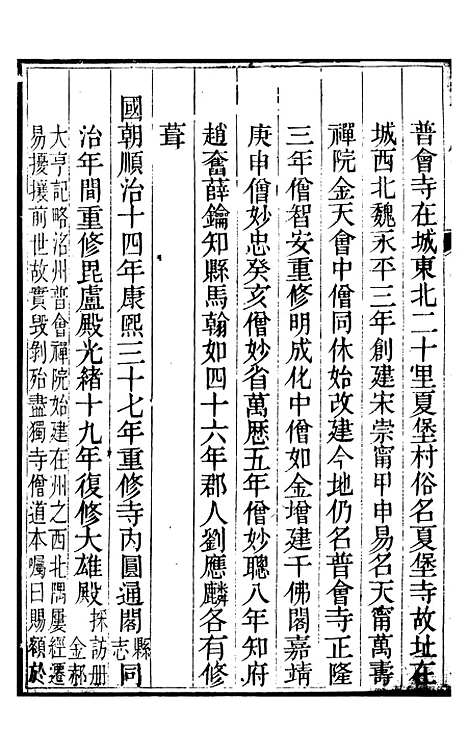 普會寺在城東北二十里夏堡村俗名夏堡寺故址在
城西北魏永平三年創建宋崇甯甲申易名天甯萬壽
禪院金天會中僧同休始改建今地仍名普會寺正隆
三年僧智安重修明成化中僧如金增建千佛閣嘉靖
庚申僧妙忠癸亥僧妙省萬曆五年僧妙聰八年知府
趙奮薛鑰知縣馬翰如四十六年郡人劉應麟各有修
葺
國朝順治十四年康熙三十七年重修寺内圓通閣縣志同
治年間重修毘盧殿光緒十九年復修大雄殿採訪册金郝
大亨記略洺州普會禪院始建在州之西北隅屢經遷
易擾攘前世故實毀剝殆盡獨寺僧道本囑曰賜額於